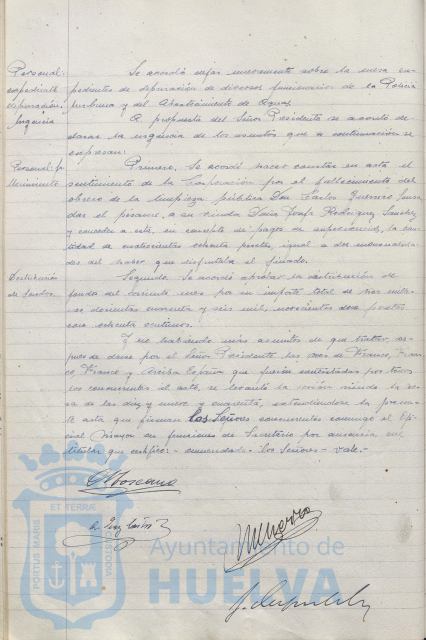 Personal:
expediente
depuración.
Urgencia
Se acordó dejar nuevamente sobre la mesa ex-
pedientes de depuración de diversos funcionarios de la Policía
urbana y del Abastecimiento de Aguas.
A propuesta del Señor Presidente se acordó de-
clarar la urgencia de los asuntos que a continuación se
expresan:
Personal: fa-
llecimiento
Primero. Se acordó hacer constar en acta el
sentimiento de la Corporación por el fallecimiento del
obrero de la limpieza pública Don Carlos Guerrero
dar el pésame a su viuda Doña Josefa Rodríguez Sánchez
y conceder a esta, en concepto de pagas de supervivencia, la can-
tidad de cuatrocientas ochenta pesetas, igual a dos mensualida-
des del haber que disfrutaba el finado.
Distribución
de fondos
Segundo. Se acordó aprobar la distribución de
fondos del corriente mes por un importe total de tres millo-
nes doscientas cuarenta y seis mil, novecientas doce pesetas
con ochenta céntimos.
Y no habiendo más asuntos de que tratar, des-
pués de darse por el Señor Presidente las voces de Franco, Fran-
co, Franco y Arriba España que fueron contestadas por todos
los concurrentes al acto, se levantó la sesión siendo la ho-
ra de las diez y nueve y cuarenta, extendiéndose la presen-
te acta que firman los Señores concurrentes conmigo el Ofi-
cial Mayor en funciones de Secretario por ausencia del
titular que certifico.- enmendado - los Señores - vale.-
PORTUS MARIS ET TERRAE CUSTODIA
Ayuntamiento de
HUELVA